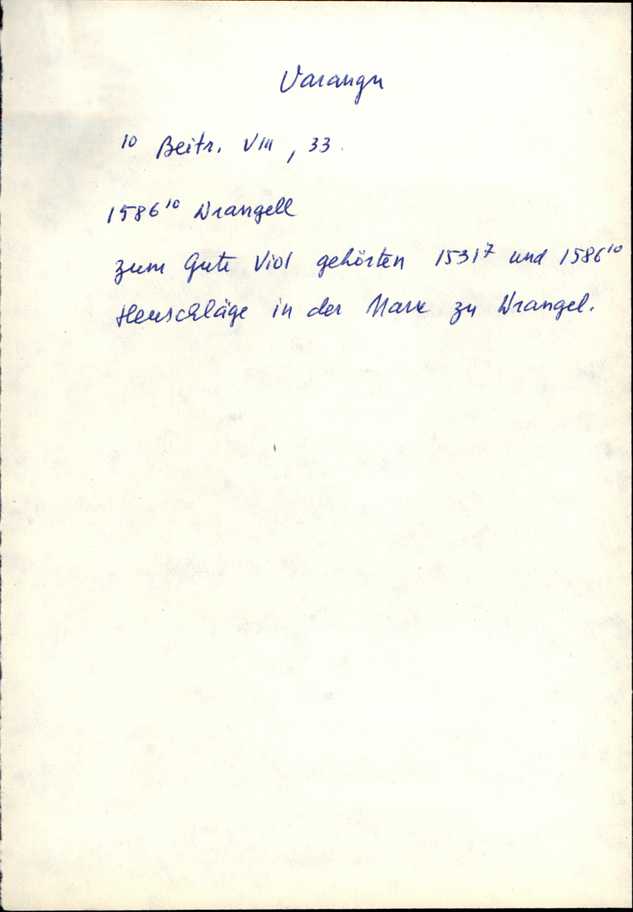 Varangu
10 Beitr. VIII, 33.
1586¹⁰ Wrangell
zum Gute Viol gehörten 1531⁷ und 1586¹⁰
Heuschläge in der Mark zu Wrangel.